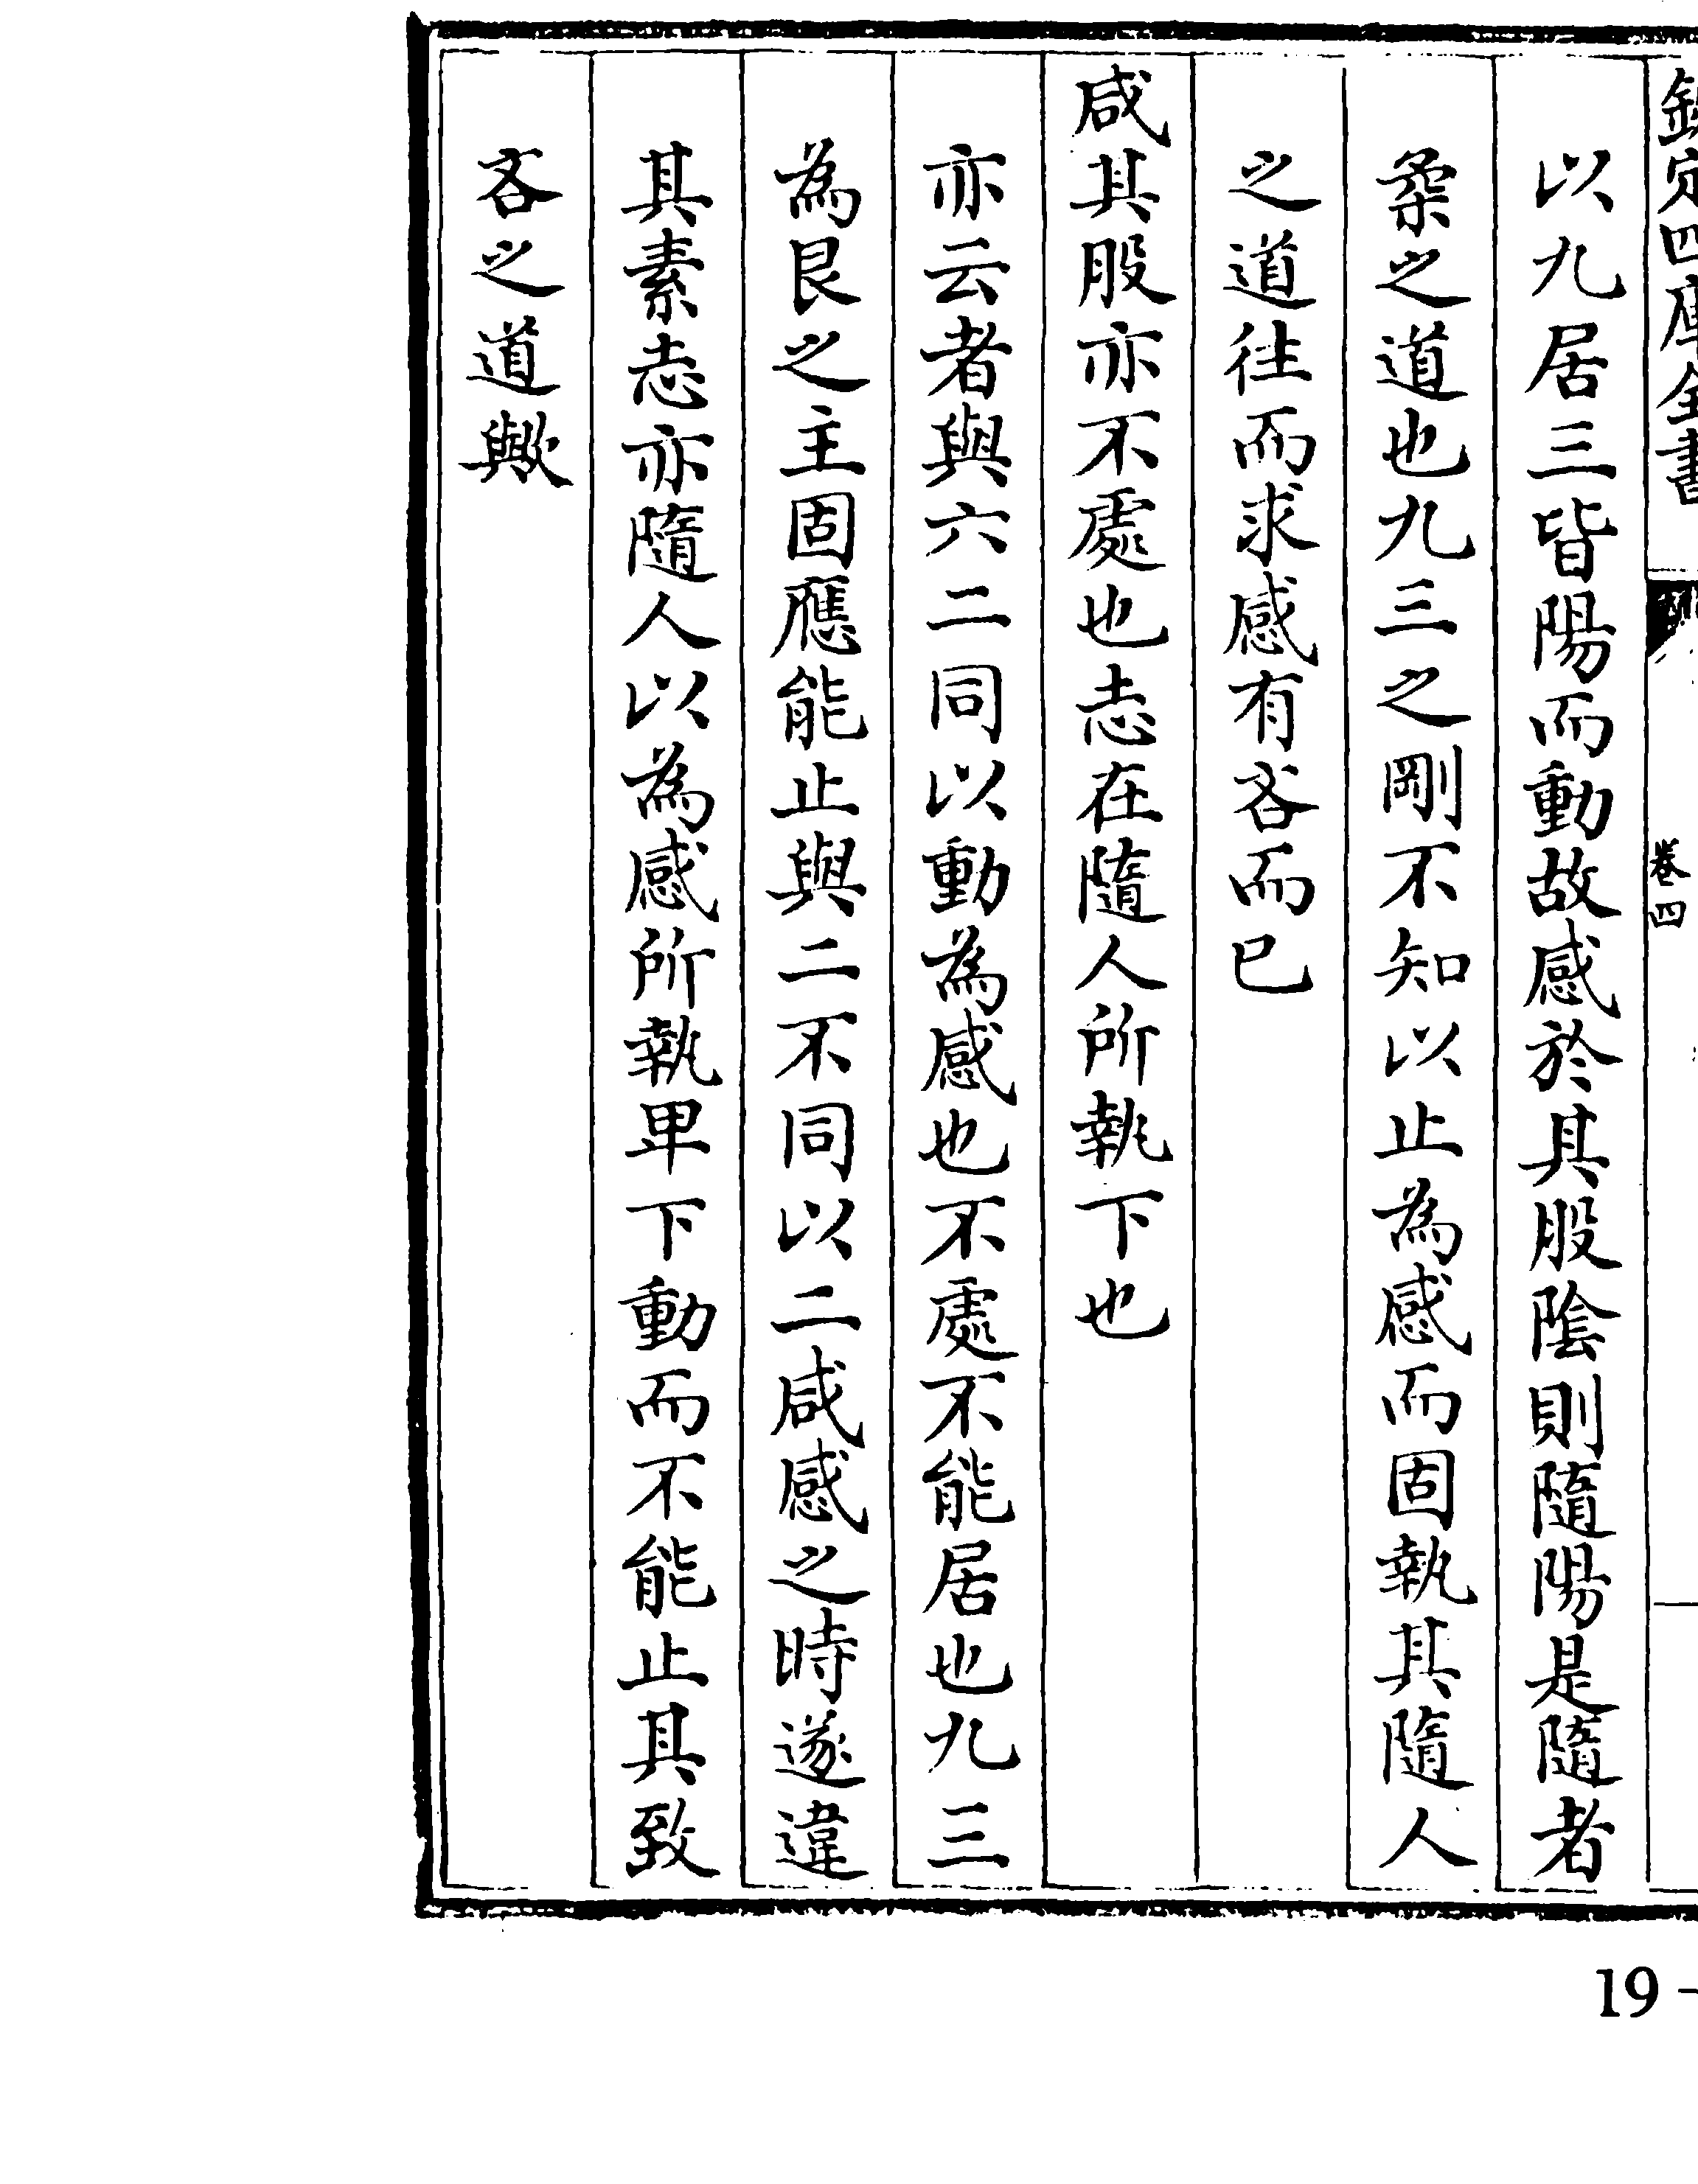 欽定四庫全書
卷四
以九居三皆陽而動故感於其股陰則隨陽是隨者
柔之道也九三之剛不知以止為感而固執其隨人
之道往而求感有吝而已
咸其股亦不處也志在隨人所執下也
亦云者與六二同以動為感也不處不能居也九三
為艮之主固應能止與二不同以二咸感之時遂違
其素志亦隨人以為感所執卑下動而不能止其致
吝之道歟
19